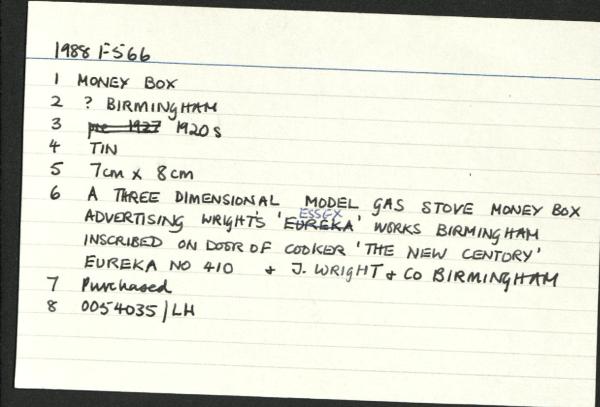 1988 F566
1 MONEY BOX
2 ? BIRMINGHAM
3 pre 1927 1920s
4 TIN
5 7cm x 8cm
6 A THREE DIMENSIONAL MODEL GAS STOVE MONEY BOX
ESSEX
ADVERTISING WRIGHT'S 'EUREKA' WORKS BIRMINGHAM
INSCRIBED ON DOOR OF COOKER 'THE NEW CENTORY'
EUREKA NO 410 + J. WRIGHT + CO BIRMINGHAM
7 Purchased
8 0054035/LH